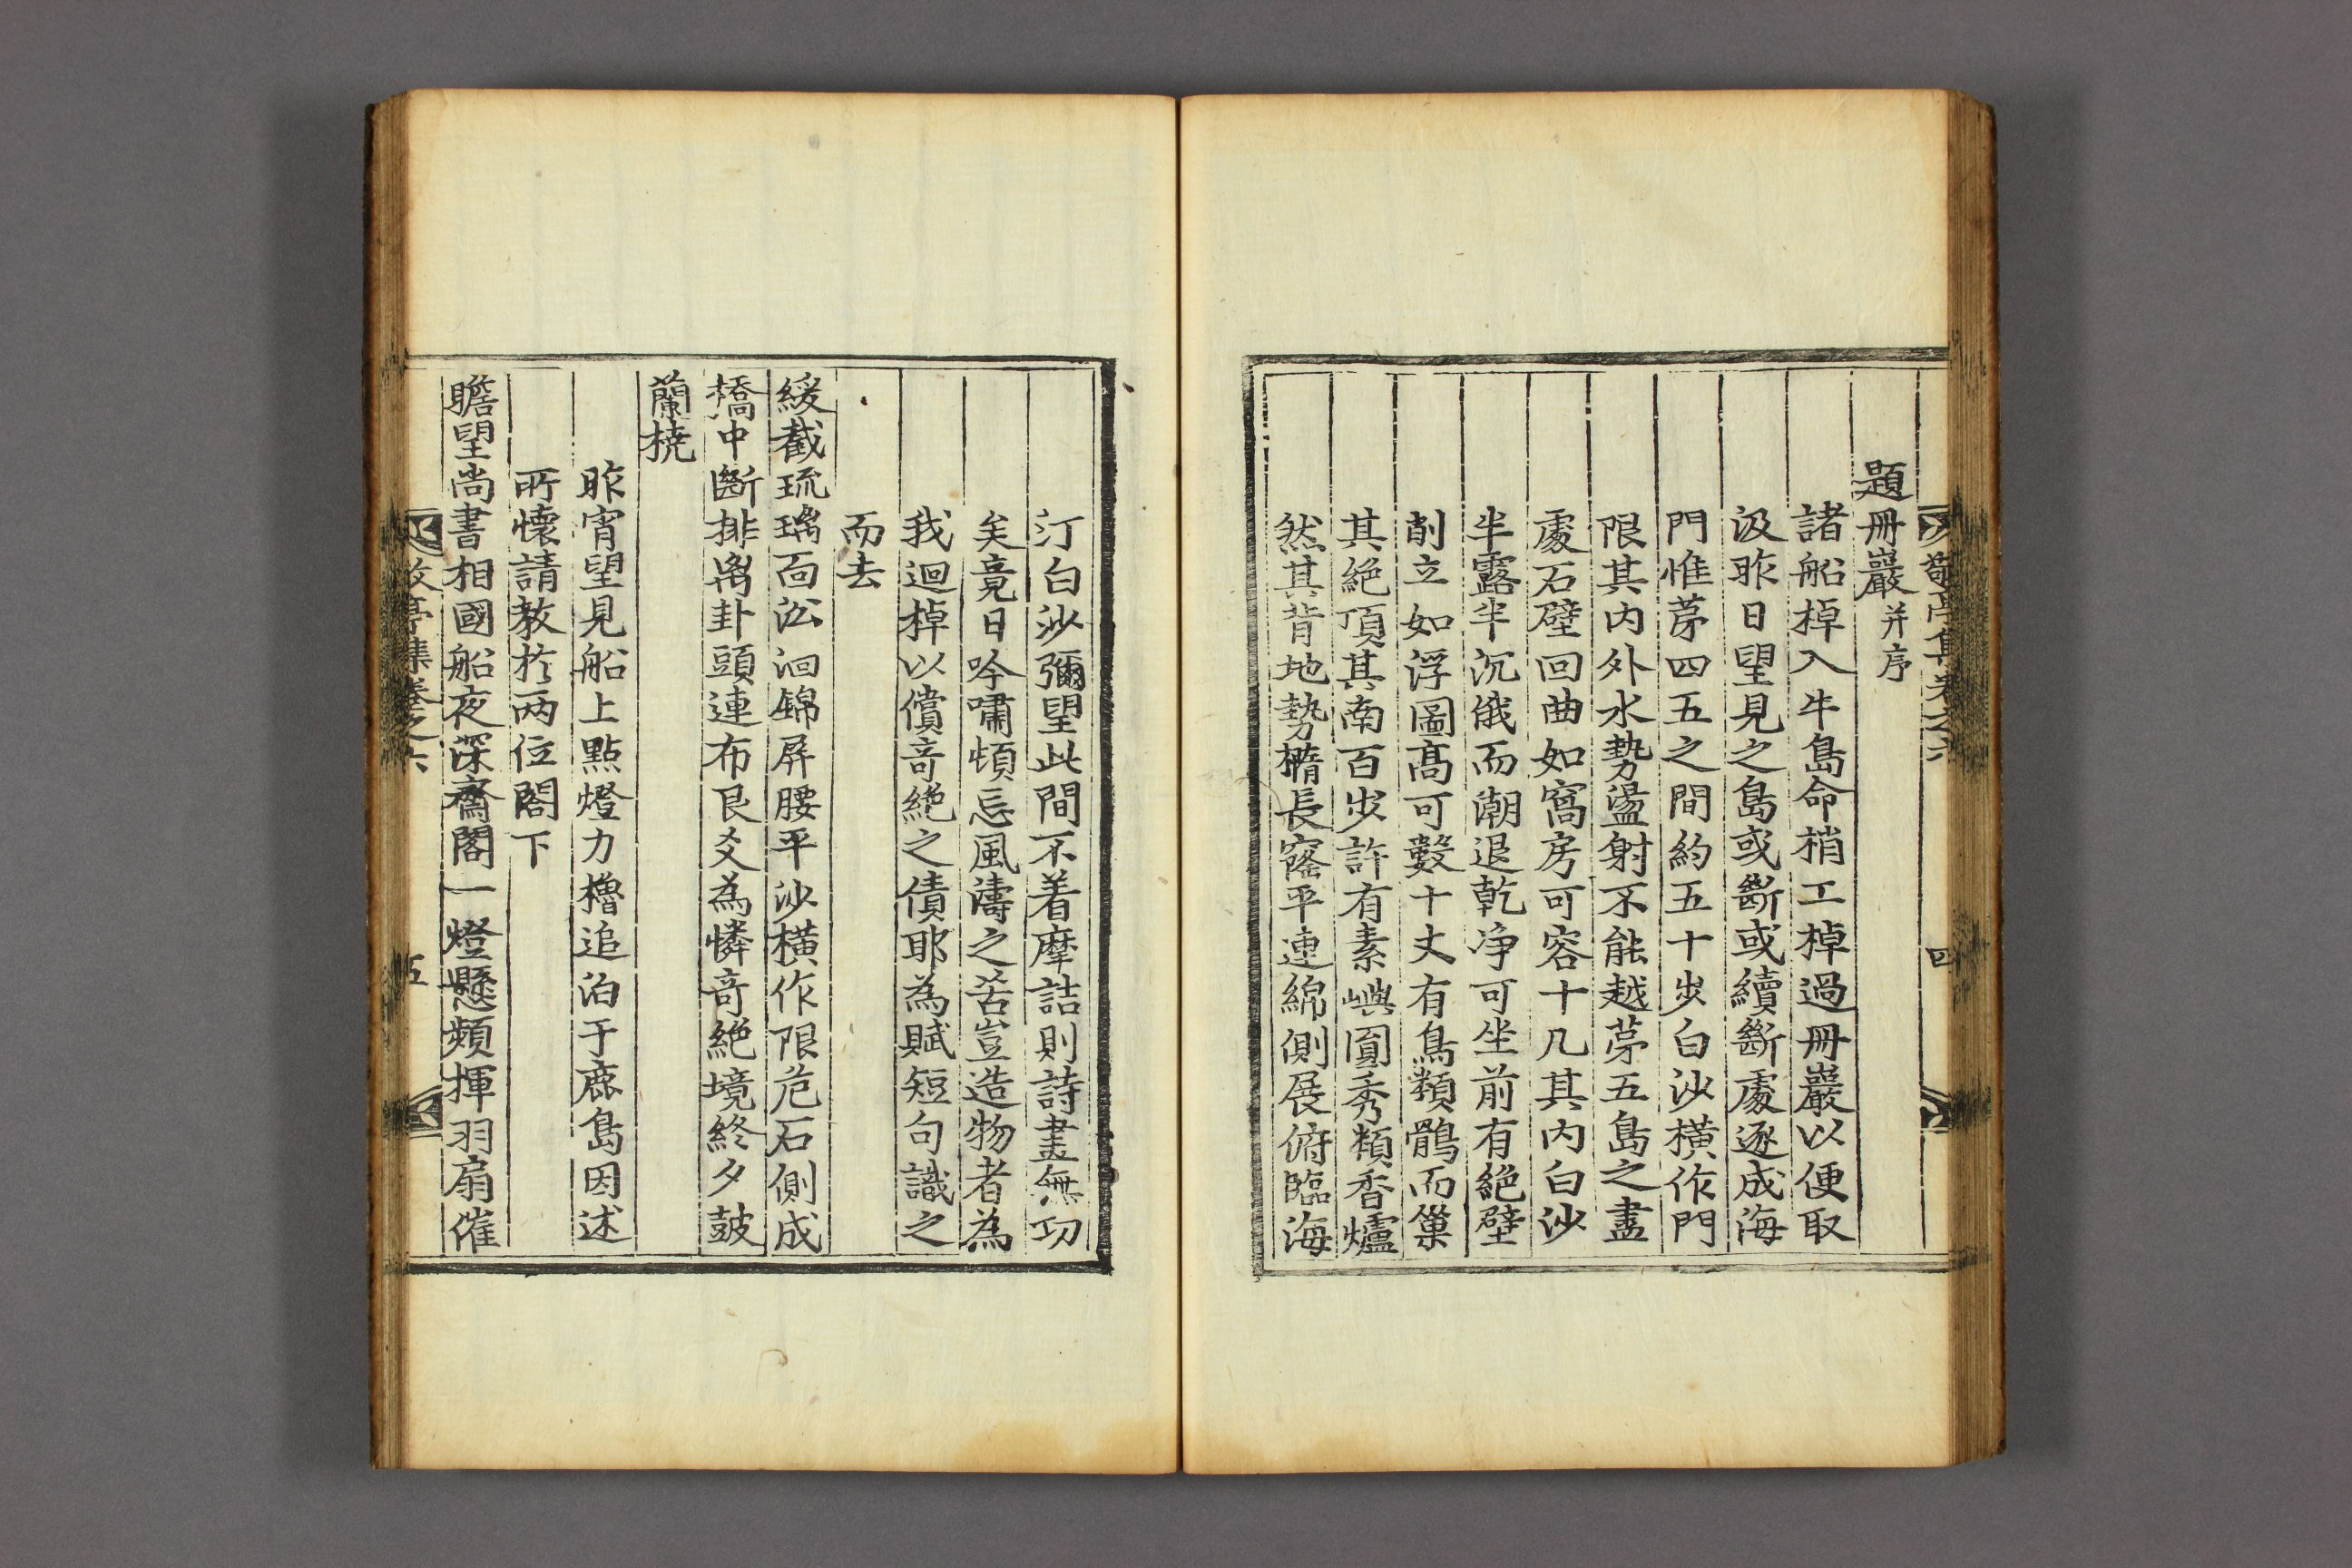 敬亭集卷之六
四
題冊巖并序
諸船棹入牛島命梢工棹過冊巖以便取
汲昨日望見之島或斷或續斷處逐成海
門惟茅四五之間約五十步白沙橫作門
限其内外水勢盪射不能越茅五島之盡
處石壁回曲如窩房可容十几其内白沙
半露半沉俄而潮退乾净可坐前有絶壁
削立如浮圖髙可數十丈有鳥類鶻而巢
其絶頂其南百步許有素嶼圓秀類香爐
然其背地勢橢長窿平連綿側展俯臨海
汀白沙彌望此間不着摩詰則詩畫無功
矣竟日吟嘯頓忘風濤之苦豈造物者為
我迴棹以償竒絶之債耶為賦短句識之
而去
緩截琉璃面㳂洄錦屏腰平沙橫作限危石側成
橋中斷排离卦頭連布艮爻為憐竒絶境終夕皷
蘭橈
昨宵望見船上點燈力櫓追泊于鹿島因述
所懷請教扵兩位閤下
瞻望尚書相國船夜深齋閤一燈懸頻揮羽扇催
敬亭集卷之六
五